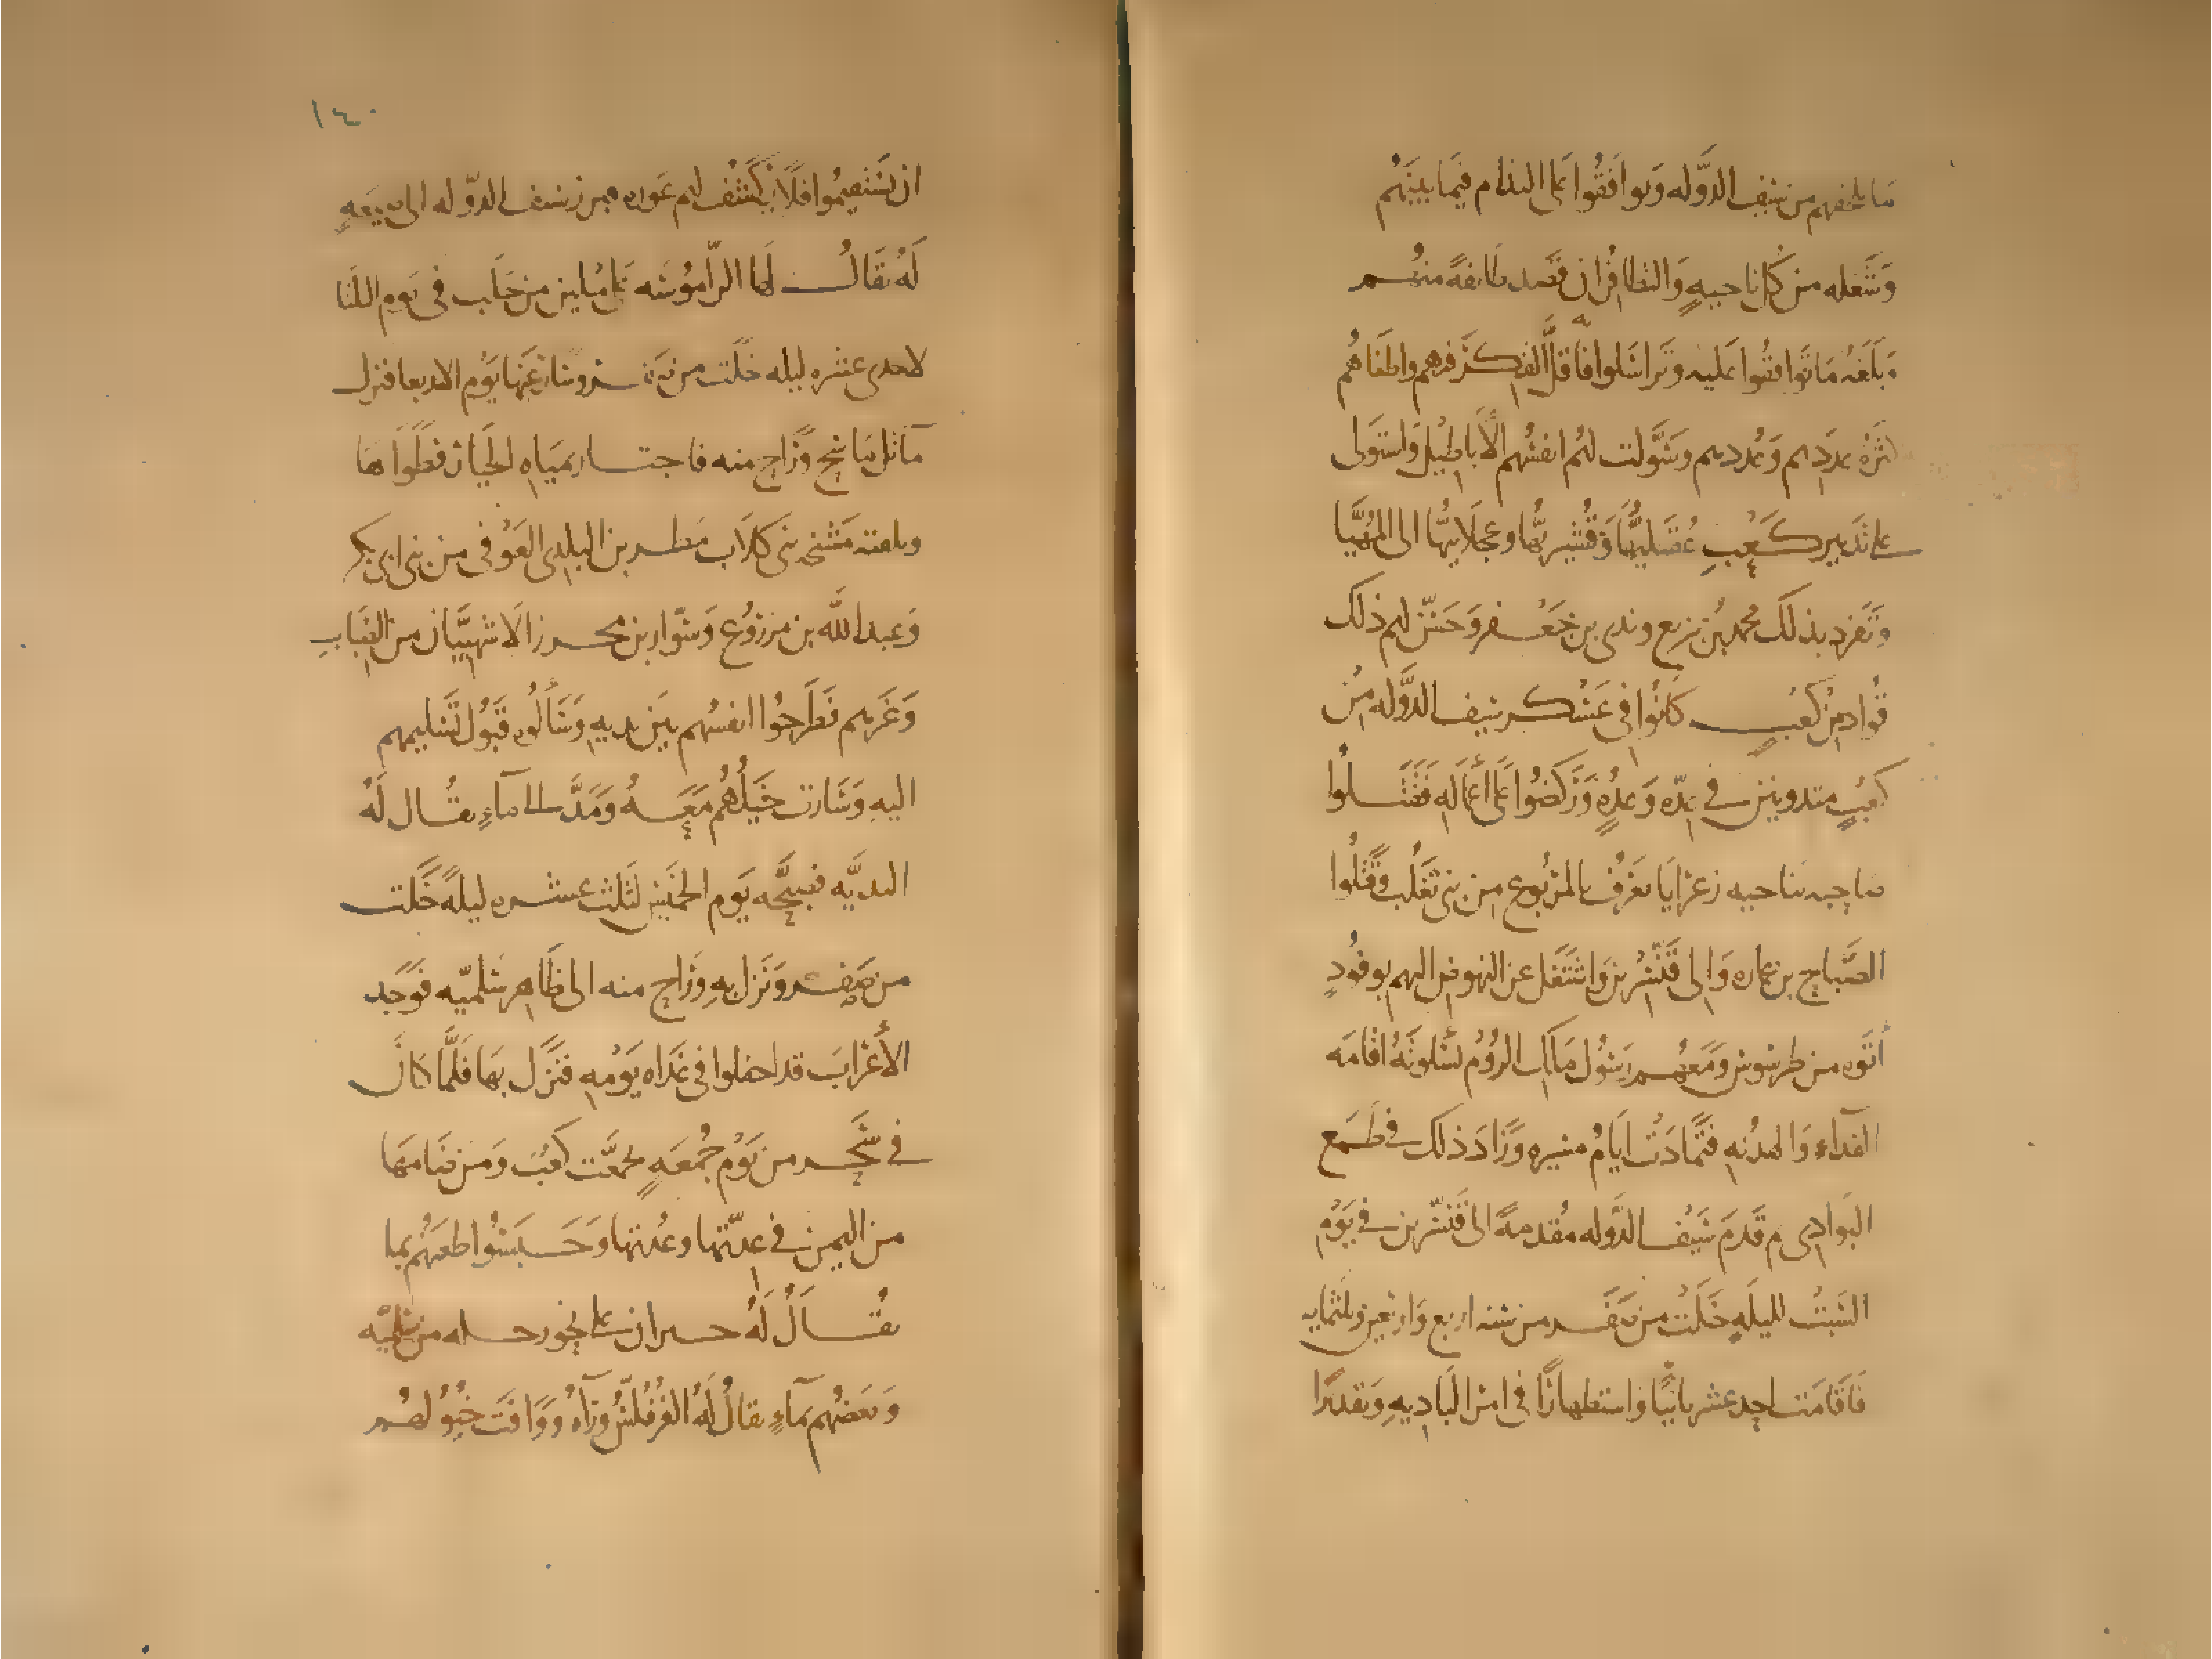 ما يلحقهم من سيف الدوله وتوافقوا على التذام فيما بينهم
وشغله من كل ناحيه والتظافر ان قصد طايفة منهم
وبلغه ما توافقوا عليه وتراسلوا به فاقل الفكر فيهم واطغاهم
كثرة عددهم وعددهم وسولت لهم انفسهم الاباطيل واستولى
على تدبير كعب عقيليها وقشيريها وعجلانيها الى المهيا
وتفرد بذلك محمد بن بزيع وندى بن جعفر وحسن لهم ذلك
قواد من كعب كانوا في عسكر سيف الدوله من
كعب متدونين في عده وعده وركضوا على اعماله فقتلوا
صاحبه بناحيه زعرايا يعرف بالمربوع من بني تغلب وقتلوا
الصباح بن عماره والى قنسرين واشتغل عن النهوض اليهم بوفود
اتوه من طرسوس ومعهم رسول ملك الروم يسلونه اقامه
الفداء والهدنه فتمادت ايام مسيره وزاد ذلك في طمع
البوادي ثم قدم سيف الدوله مقدمه الى قنسرين في يوم
السبت لليله خلت من صفر من سنه اربع واربعين وثلثمايه
فاقامت احد عشر يوما واستظهارا في امر الباديه وتقديرا
١٤٠
ان يستقيموا فلا ينكشف لهم عوره فبرز سيف الدوله الى ضيعه
له يقال لها الراموسه على ميلين من حلب في يوم الثلثا
لاحدى عشره ليله خلت من صفر وسار عنها يوم الاربعا فنزل
ماثل ماسح وراح منه فاجتاز بمياه الحيار فطواها
وتلقته مشيخه بني كلاب مطر بن البلدي العوفي من بني ابي بكر
وعبد الله بن مزروع وسوار بن محرز الاشهبيان من الضباب
وغيرهم فطرحوا انفسهم بين يديه وسالوه قبول تسليمهم
اليه وسارت خيلهم معه ومد الى ماء يقال له
البديه فصبحه يوم الخميس لثلث عشره ليلة خلت
من صفر ونزل به وراح منه الى ظاهر سلميه فوجد
الأعراب قد اجفلوا في غداه يومه فنزل بها فلما كان
في سحر من يوم جمعه تجمعت كعب ومن ضامها
من اليمن في عدتها وعدتها وحبسوا ظعنهم بما
يقال له حيران على نحو رحله من سلميه
وبعضهم بماء يقال له الفرقلس وراه ووافت خيولهم